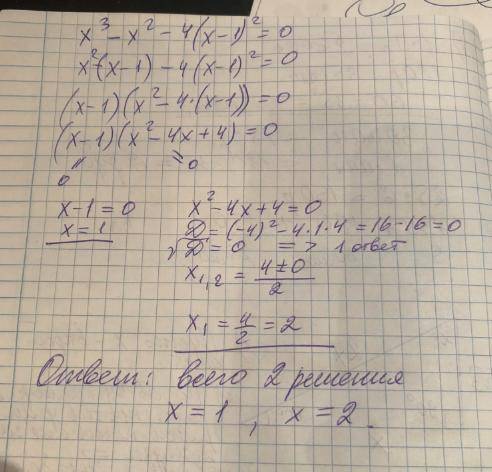 x³ - x² - 4(x-1)² = 0
x²(x-1) - 4(x-1)² = 0
(x-1)(x² - 4·(x-1)) = 0
(x-1)(x² - 4x + 4) = 0
0 0
x - 1 = 0
x = 1
x² - 4x + 4 = 0
D = (-4)² - 4·1·4 = 16 - 16 = 0
√D = 0 => 1 ответ
x₁,₂ = (4 ± 0)/2
x₁ = 4/2 = 2
Ответ: всего 2 решения
x = 1, x = 2.